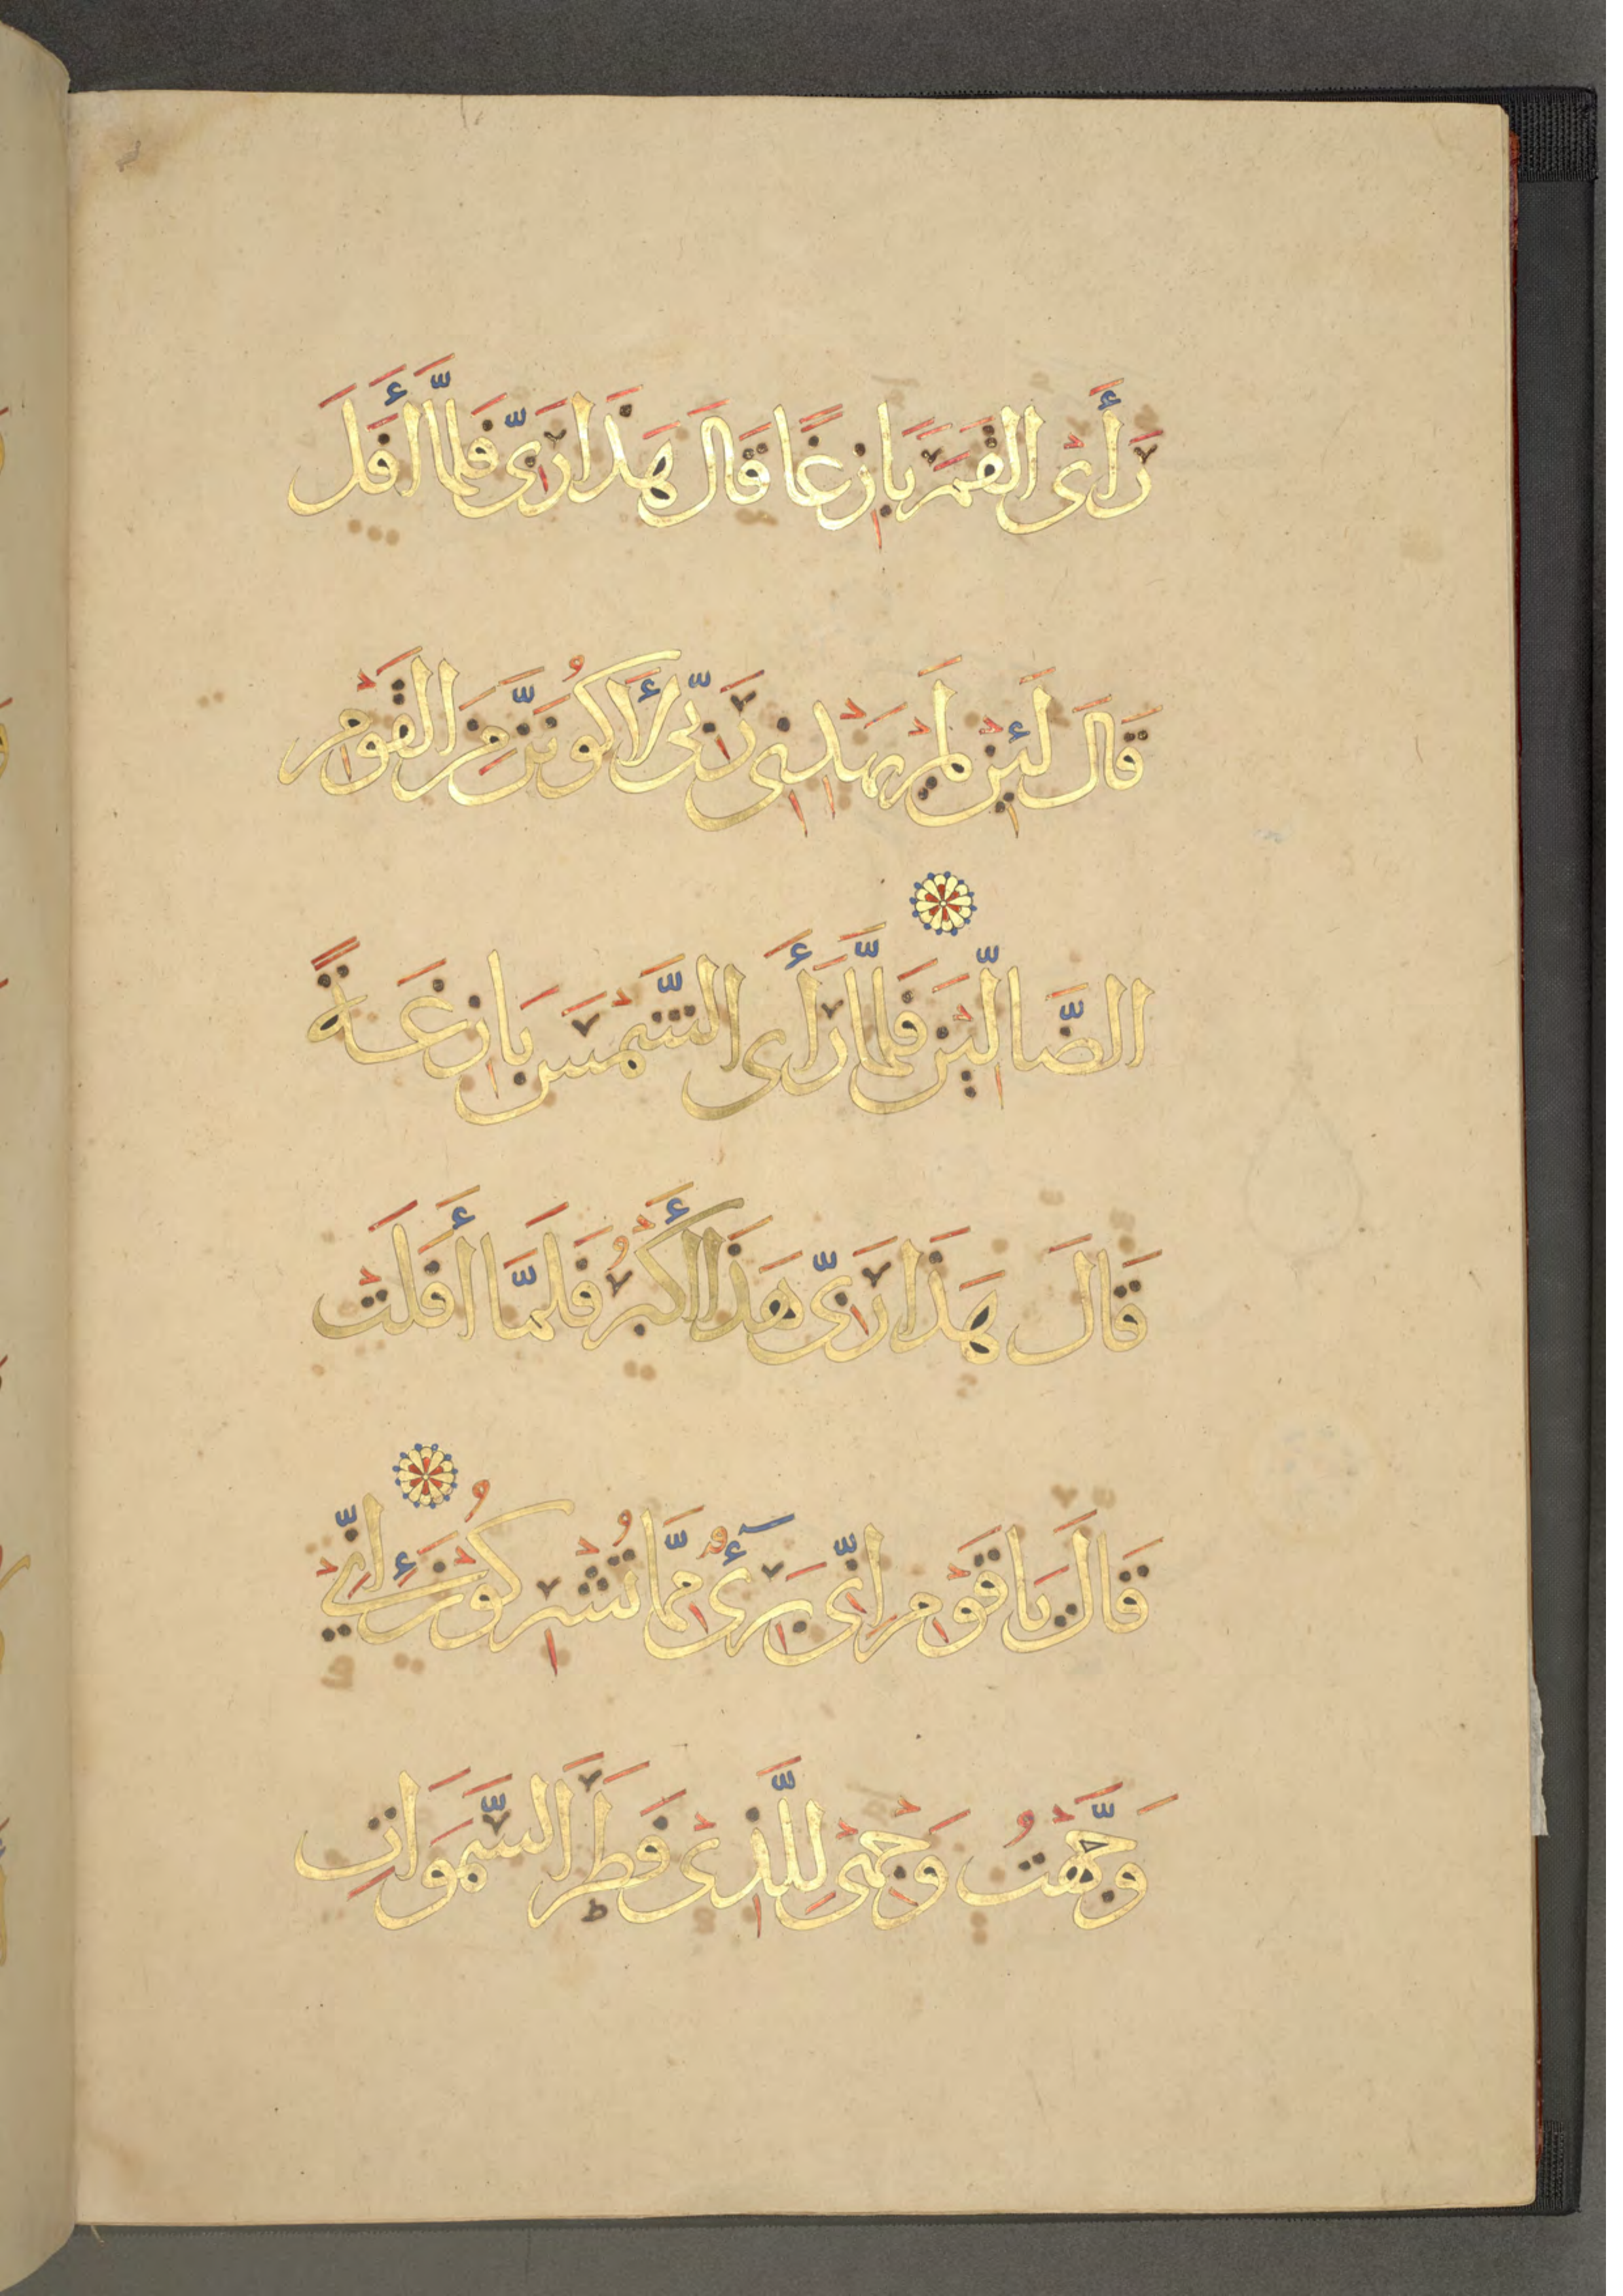 رَأَىْ الْقَمَرَ بَازِغًا قَالَ هَذَا رَبِّى فَلَمَّا أَفَلَ
قَالَ لَئِنْ لَمْ يَهْدِنِى رَبِّى لَأَكُونَنَّ مِنَ الْقَوْمِ
الضَّالِّيْنَ فَلَمَّا رَأَى الشَّمْسَ بَازِغَةً
قَالَ هَذَا رَبِّى هَذَا أَكْبَرُ فَلَمَّا أَفَلَتْ
قَالَ يَا قَوْمِ إِنِّى بَرِىٓءٌ مِمَّا تُشْرِكُوْنَ إِنِّيْ
وَجَّهْتُ وَجْهِىَ لِلَّذِىْ فَطَرَ السَّمَوَاتِ